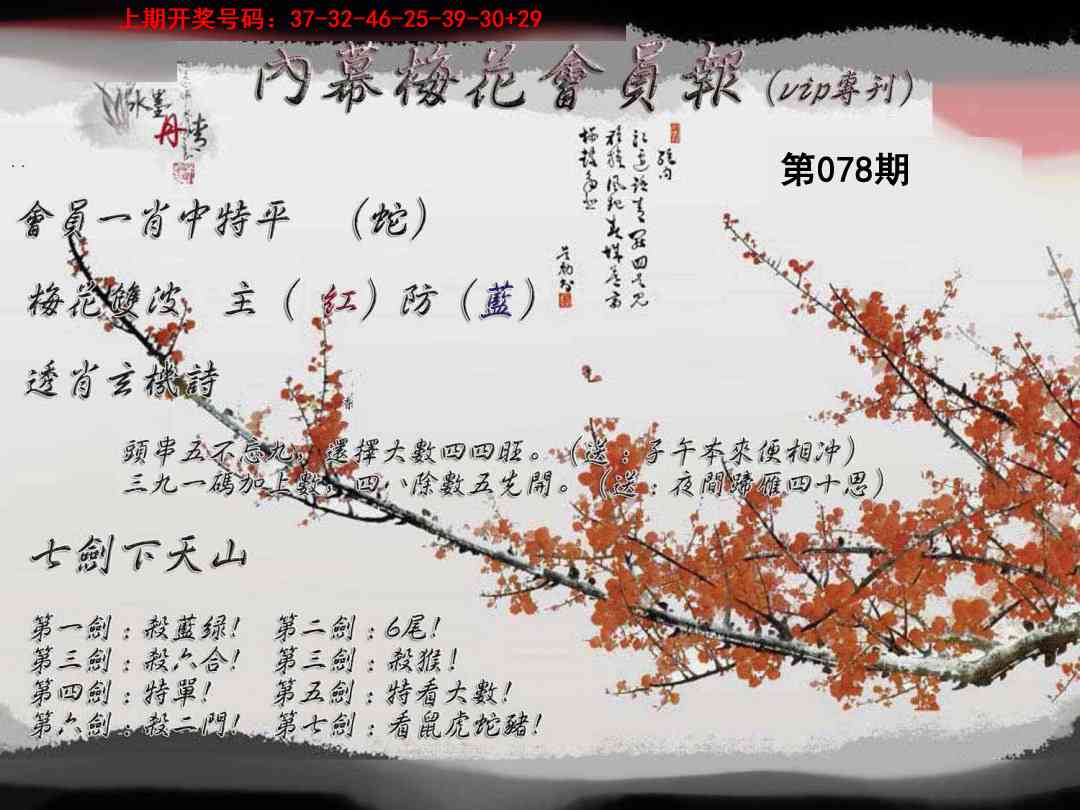 上期开奖号码：37-32-46-25-39-30+29
內幕梅花會員報（vip專刊）
水墨
丹青
第078期
會員一肖中特平 （蛇）
梅花雙波 主（紅）防（藍）
透肖玄機詩
頭串五不忘九，還擇大數四四旺。（送：子午本來便相冲）
三九一碼加上數，四八除數五先開。（送：夜間歸雁四十思）
七劍下天山
第一劍：殺藍绿！ 第二劍：6尾！
第三劍：殺六合！ 第三劍：殺猴！
第四劍：特單！ 第五劍：特看大數！
第六劍：殺二門！ 第七劍：看鼠虎蛇豬！